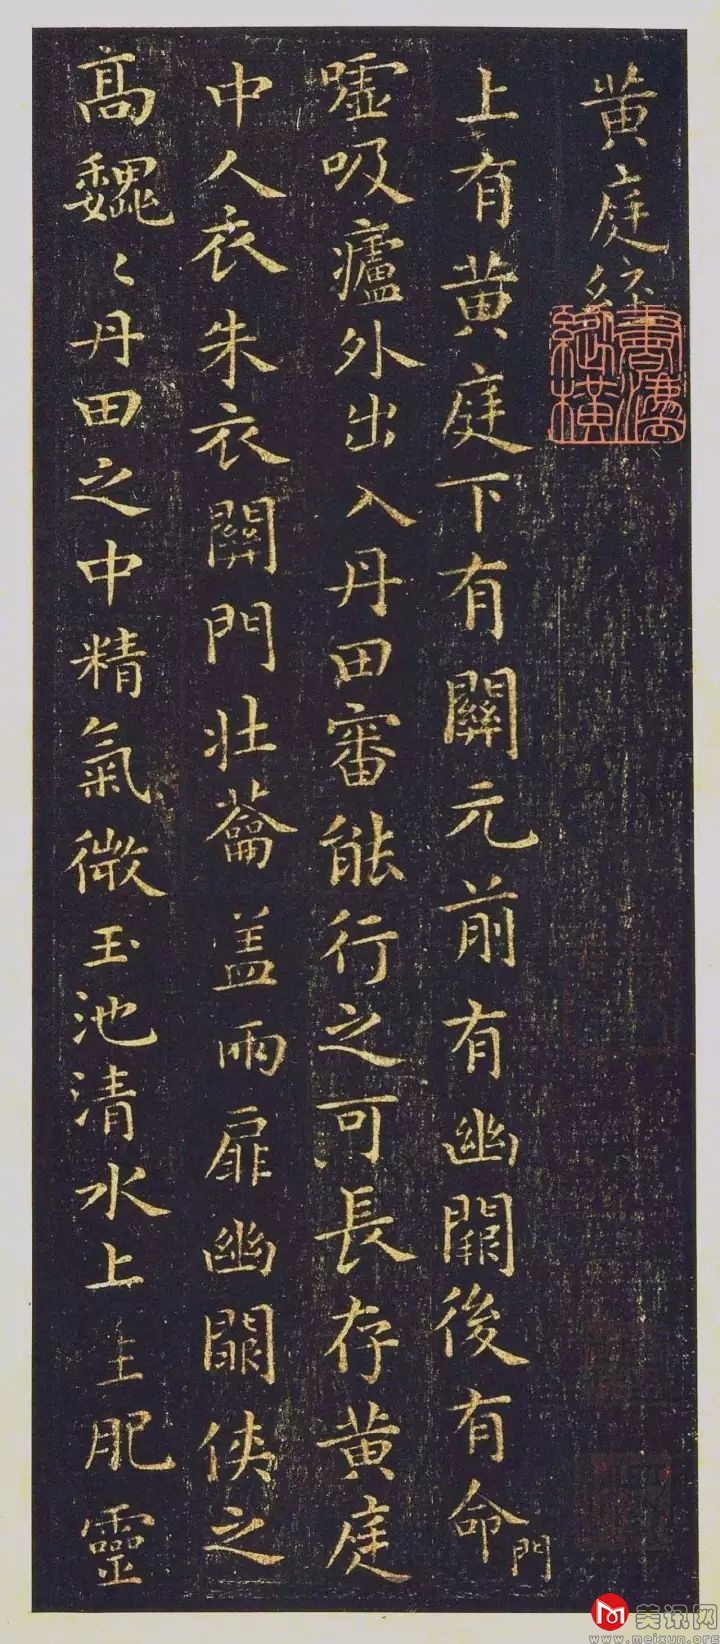 黄庭經
上有黄庭下有關元前有幽闕後有命門
嘘吸廬外出入丹田審能行之可長存黄庭
中人衣朱衣關門壮蘥盖兩扉幽闕侠之
高巍〻丹田之中精氣微玉池清水上生肥靈
美讯网
www.meixun.org